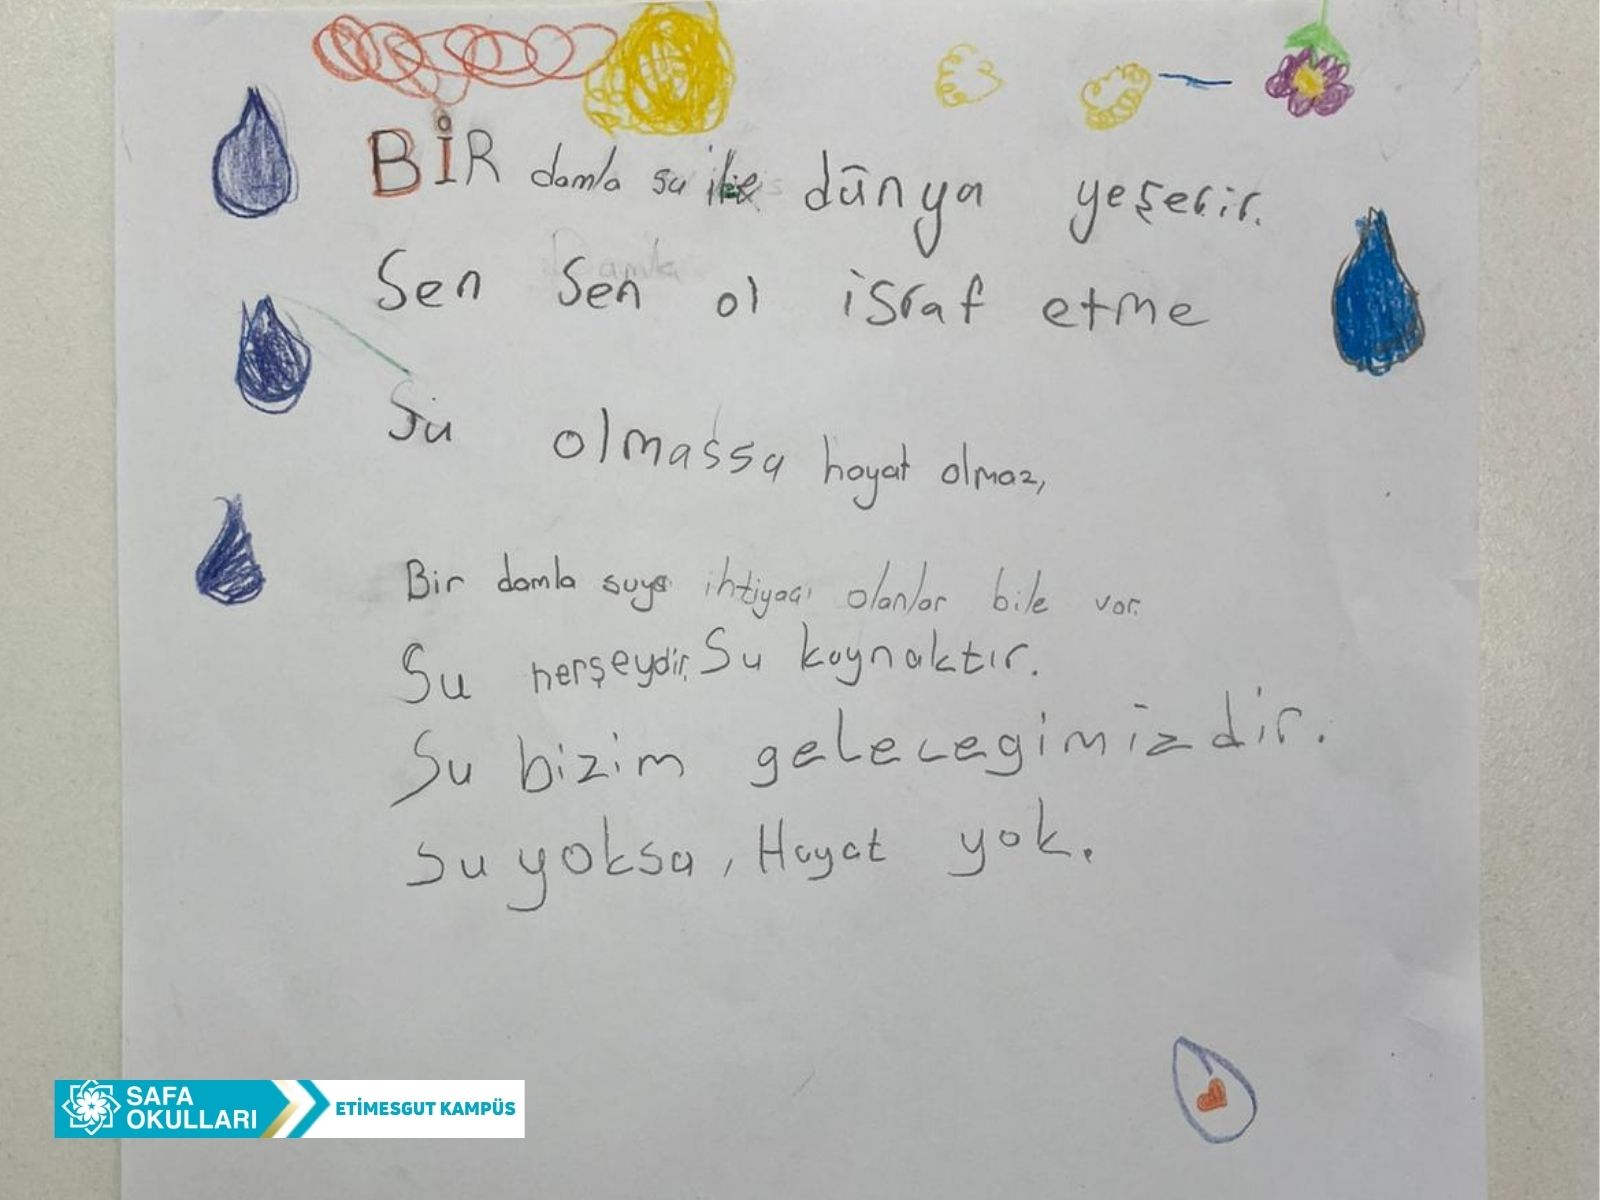 BİR damla su ile dünya yeşerir.
Sen Sen ol israf etme
Su olmassa hayat olmaz,
Bir damla suya ihtiyacı olanlar bile var.
Su herşeydir, Su kaynaktır.
Su bizim gelecegimizdir.
Su yoksa, Hayat yok.
SAFA OKULLARI
ETİMESGUT KAMPÜS